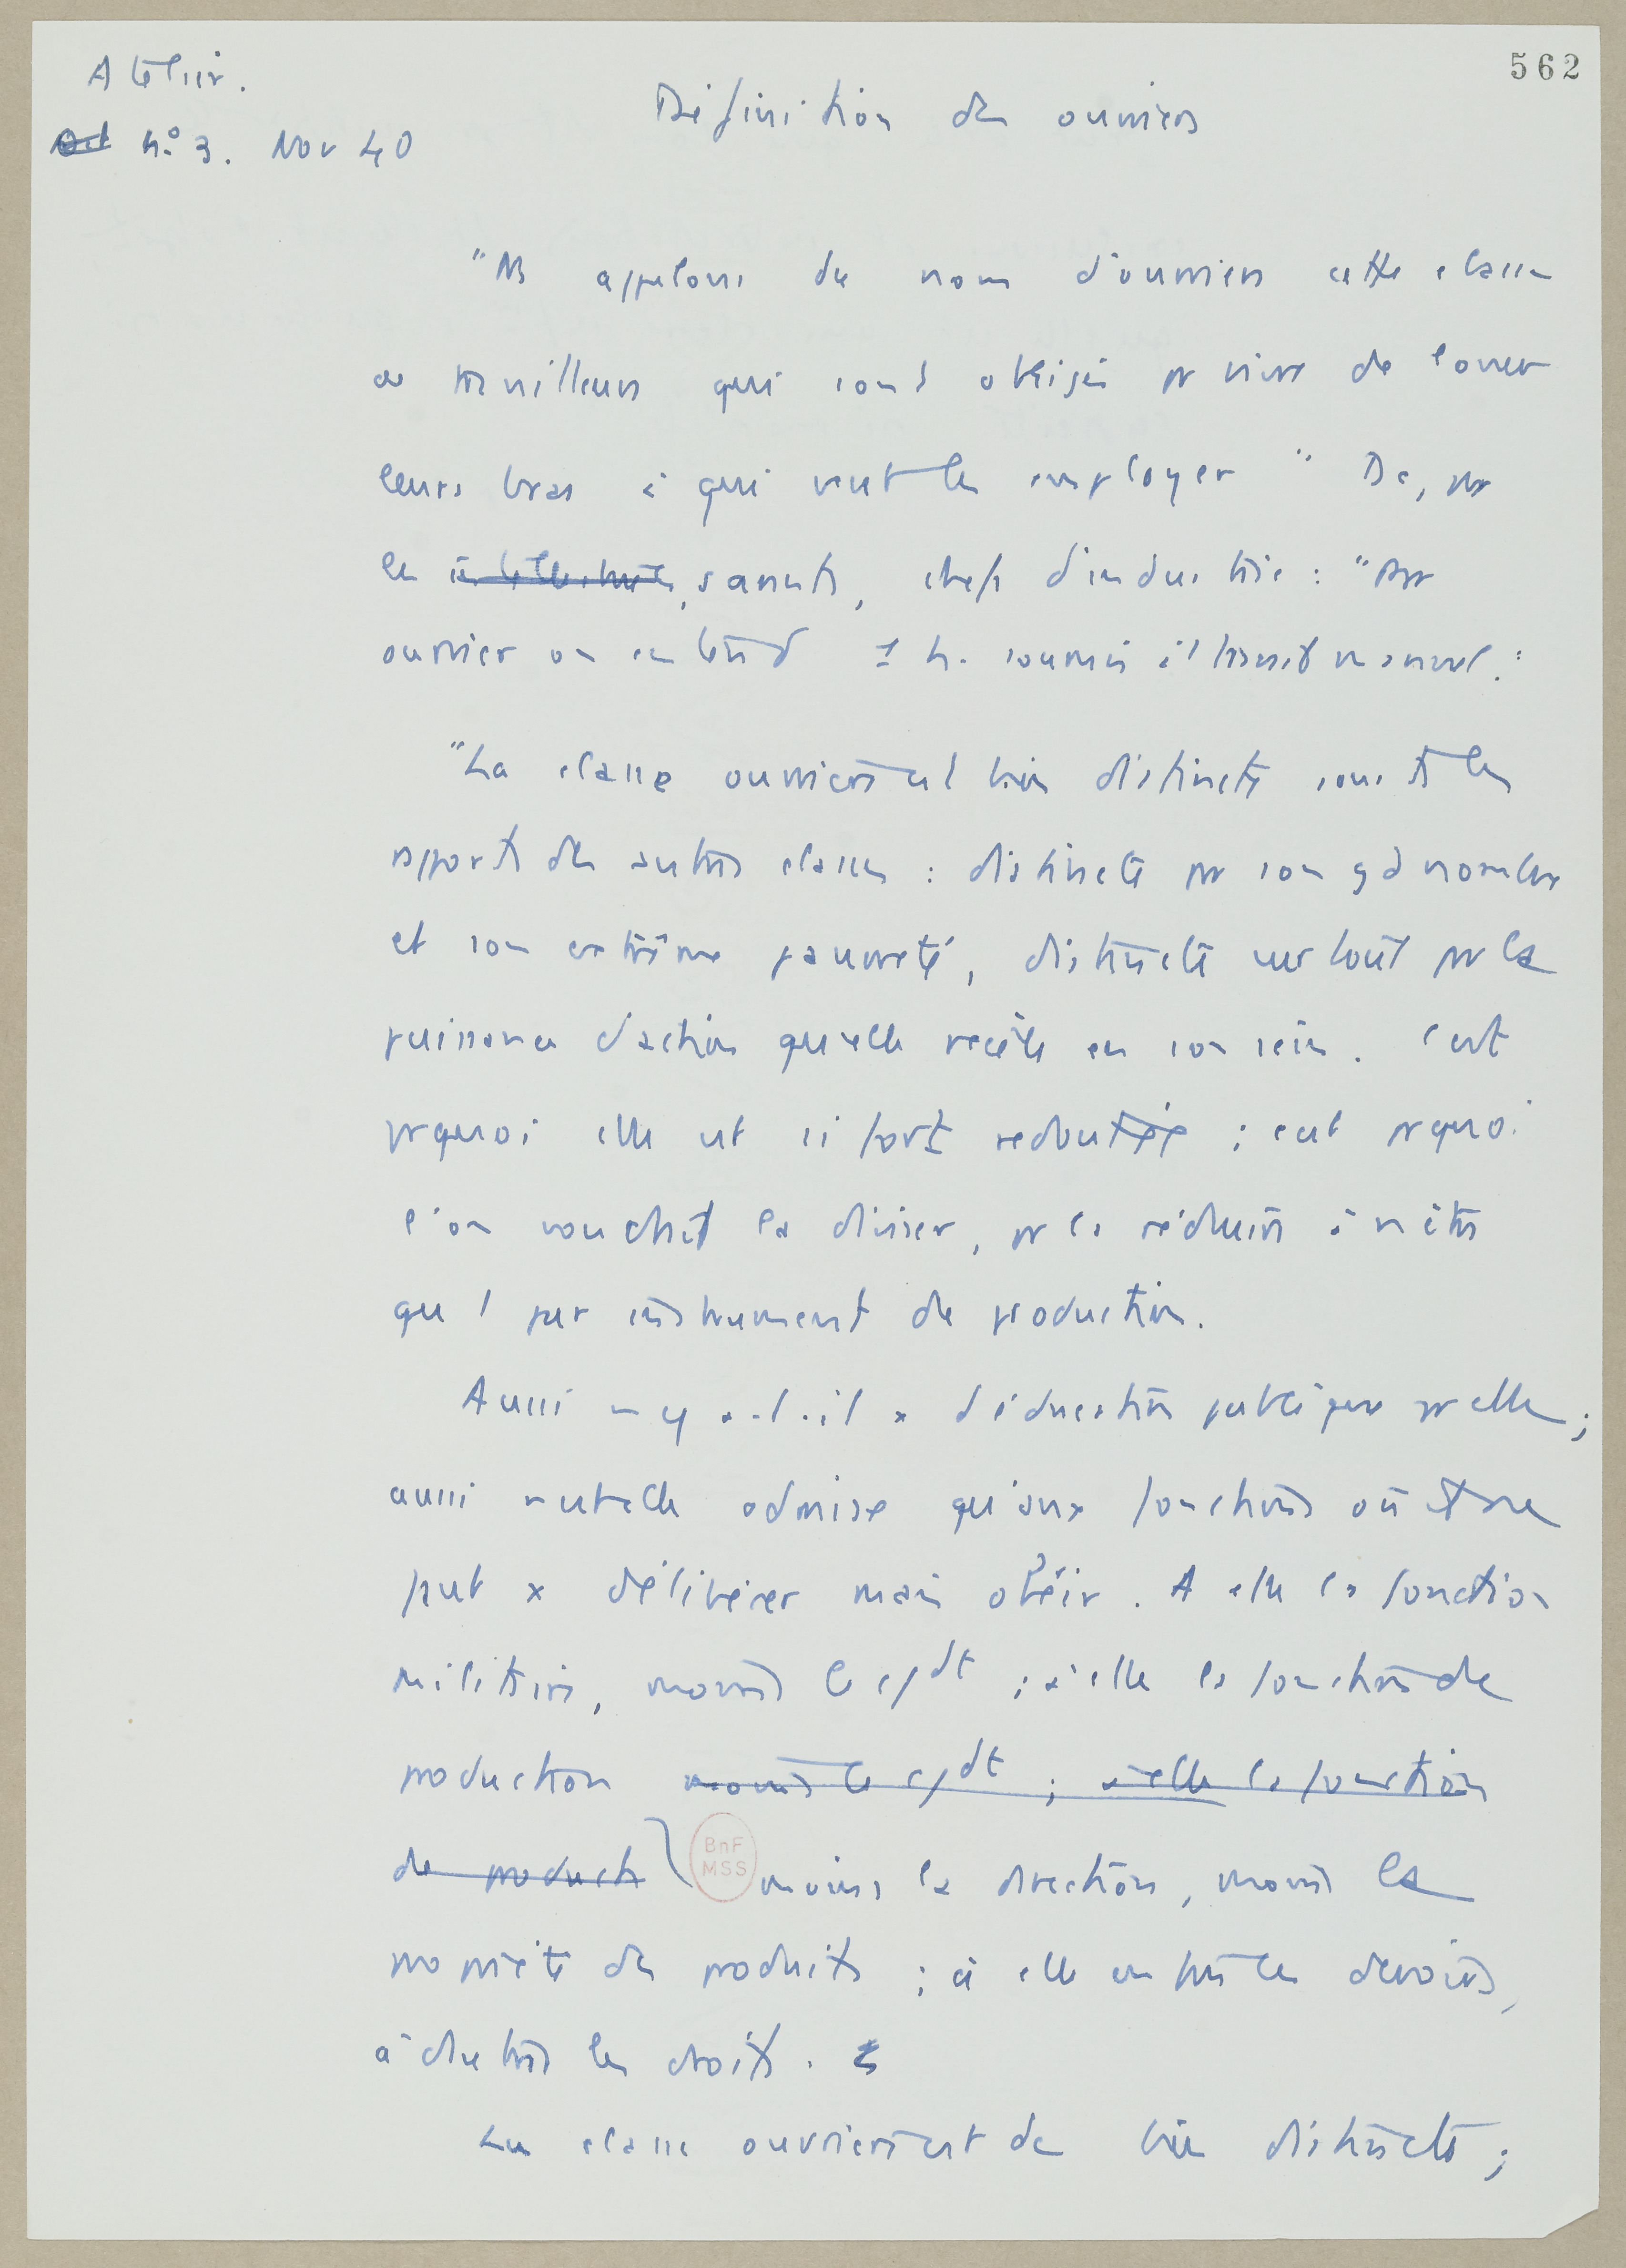 562
Atelier.
Définition des ouvriers
Oct n° 3. Nov 40
"Ns appelons du nom d'ouvriers cette classe
de travailleurs qui sont obligés pr vivre de louer
leurs bras à qui veut les employer" Dc, pr
les intellectuels, savants, chefs d'industrie : "Par
ouvrier on entend 1 h. soumis à 1 travail manuel.":
"La classe ouvrière est bien distincte sous ts les
rapports des autres classes : distincte par son gd nombre
et son extrême pauvreté, distincte surtout par la
puissance d'action qu'elle recèle en son sein. C'est
prquoi elle est si fort redoutée ; c'est prquoi
l'on voudrait la diviser, pr la réduire à n'être
qu'1 pur instrument de production.
Aussi n'y a-t-il x d'éducation publique pr elle ;
aussi n'est-elle admise qu'aux fonctions où il ne
faut x délibérer mais obéir. A elle la fonction
militaire, moins le cdt ; à elle la fonction de
production moins le cdt ; à elle la fonction
de producti moins la direction, moins la
propriété des produits ; à elle enfin les devoirs,
à d'autres les droits.
La classe ouvrière est dc bien distincte ;
BnF
MSS